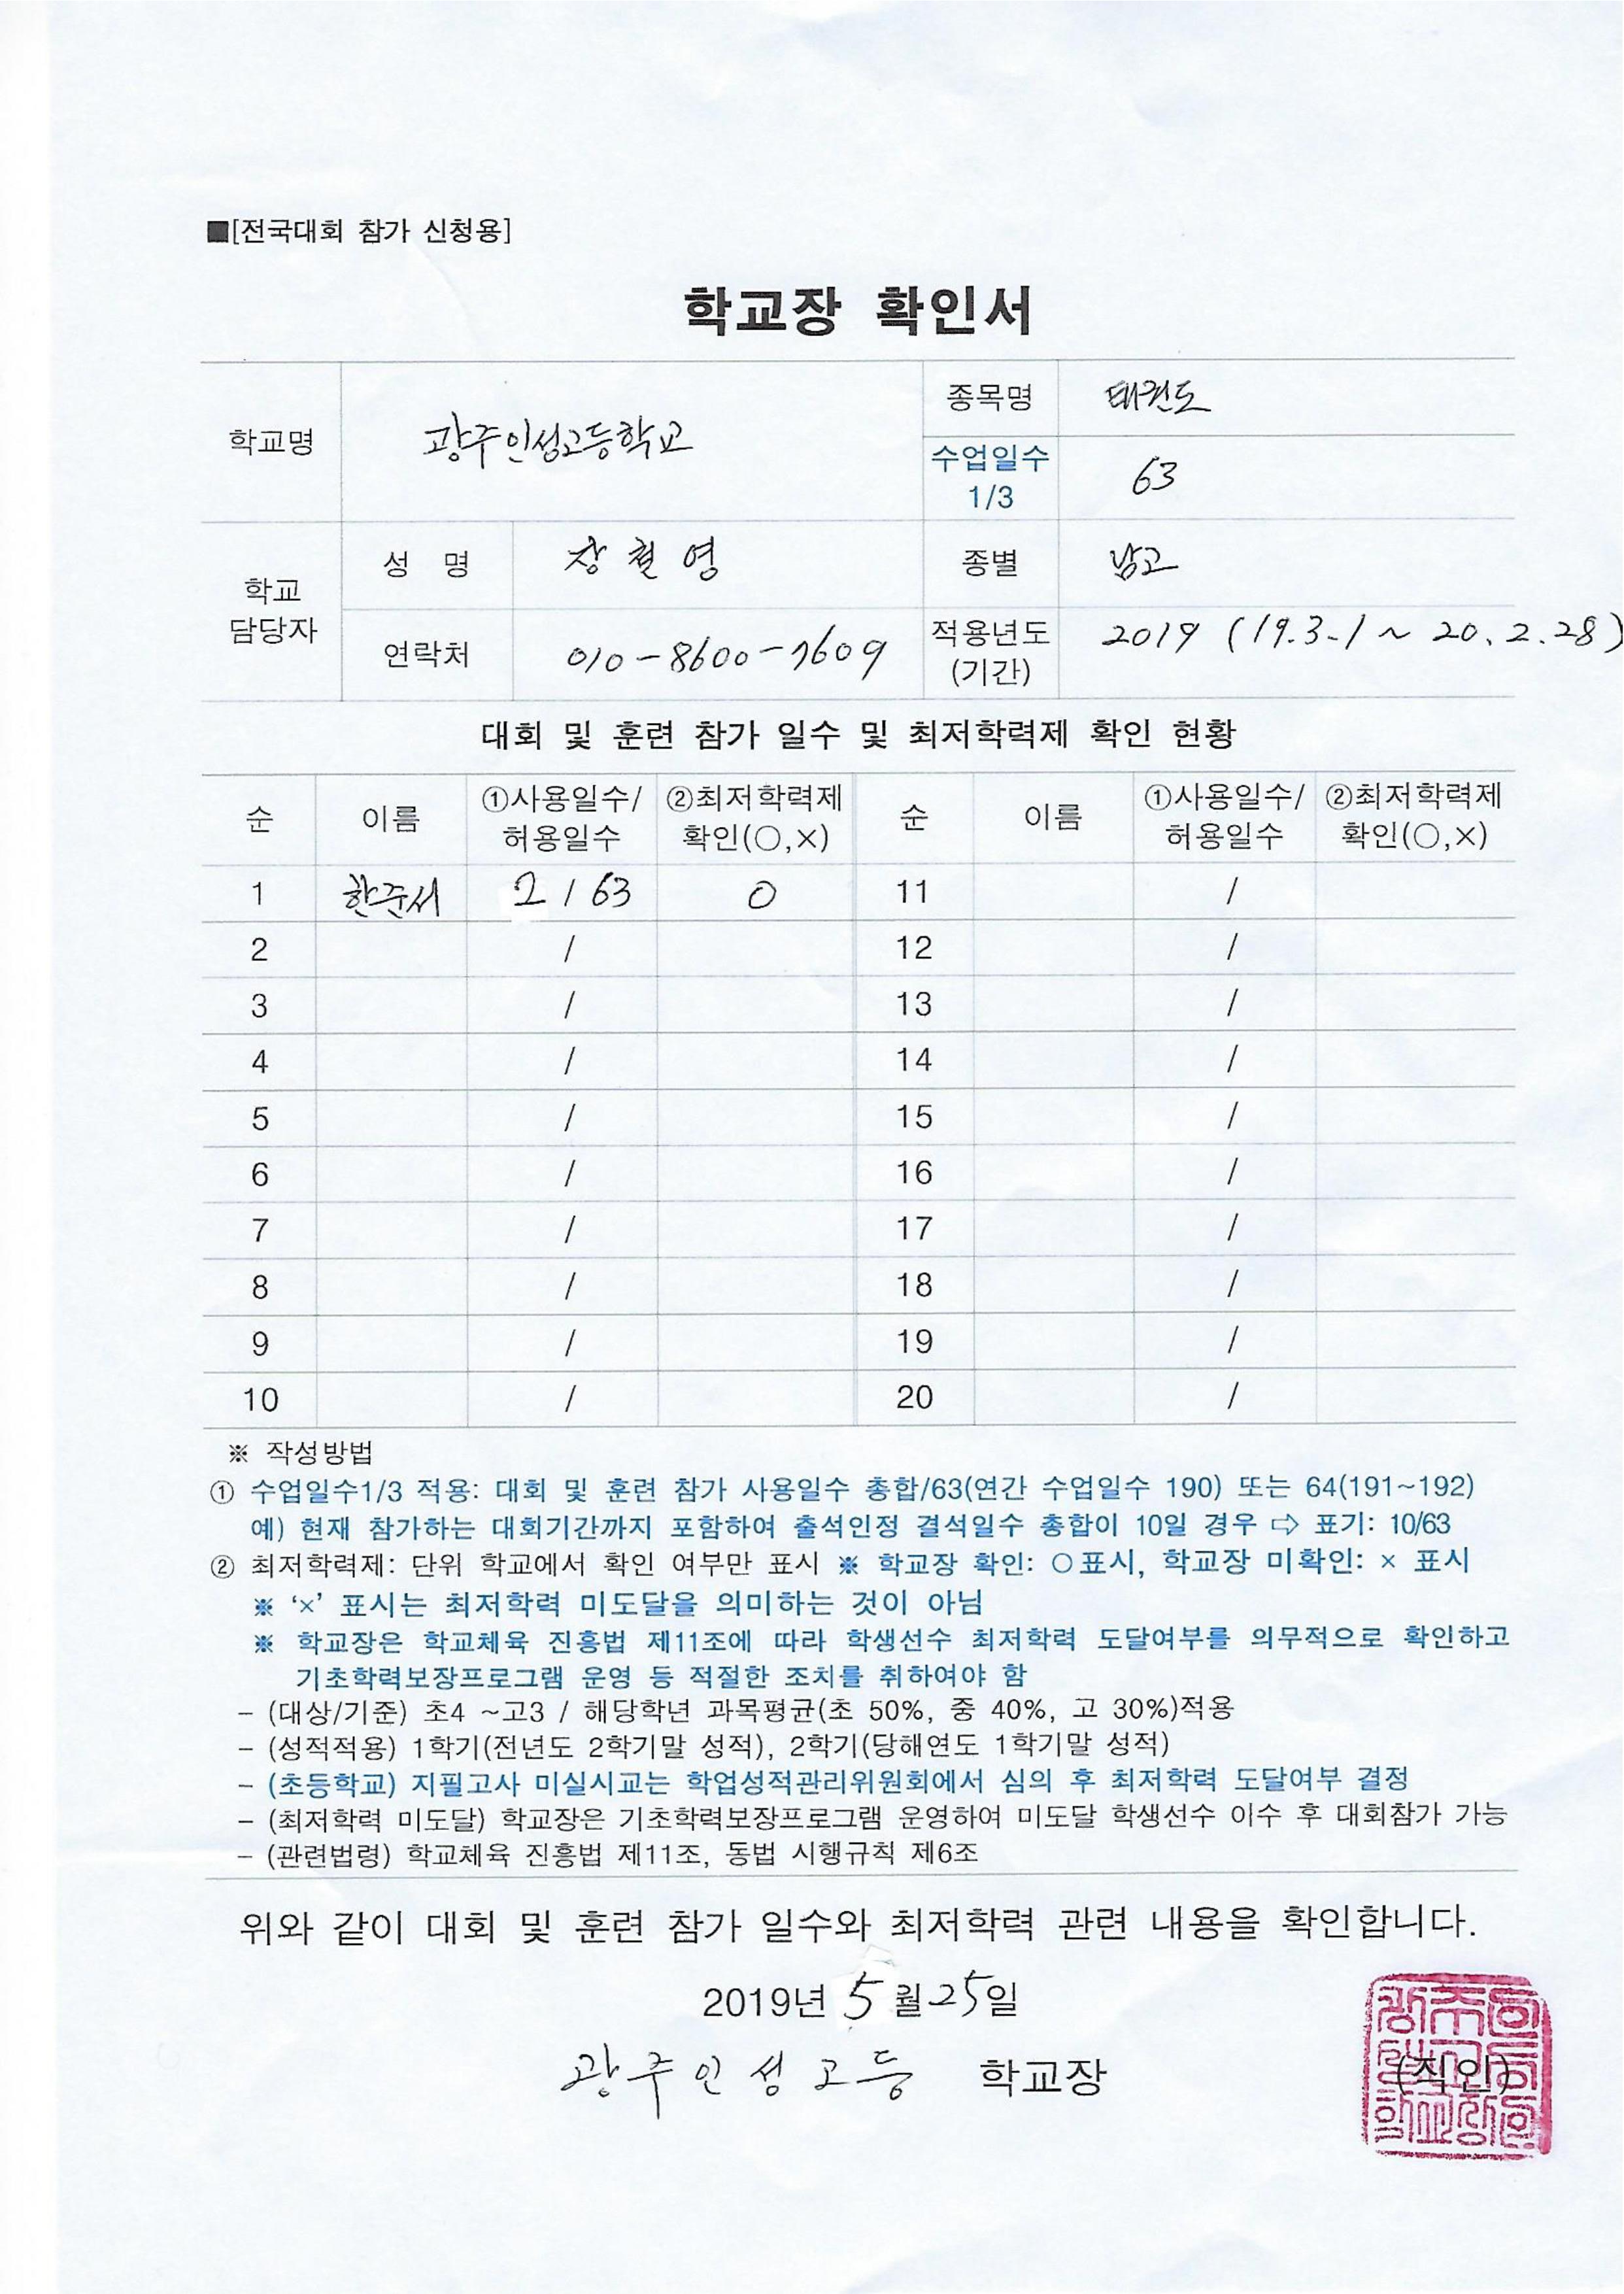 ■[전국대회 참가 신청용]
학교장 확인서
학교명 광주인성고등학교 종목명 태권도
수업일수 1/3 63
학교 담당자 성 명 장철영 종별 남고
연락처 010-8600-7609 적용년도 (기간) 2019 (19.3.1 ~ 20.2.28)
대회 및 훈련 참가 일수 및 최저학력제 확인 현황
순 이름 ①사용일수/허용일수 ②최저학력제 확인(○,×) 순 이름 ①사용일수/허용일수 ②최저학력제 확인(○,×)
1 한준서 2 / 63 O 11 /
2 / 12 /
3 / 13 /
4 / 14 /
5 / 15 /
6 / 16 /
7 / 17 /
8 / 18 /
9 / 19 /
10 / 20 /
※ 작성방법
① 수업일수1/3 적용: 대회 및 훈련 참가 사용일수 총합/63(연간 수업일수 190) 또는 64(191~192)
예) 현재 참가하는 대회기간까지 포함하여 출석인정 결석일수 총합이 10일 경우 ⇨ 표기: 10/63
② 최저학력제: 단위 학교에서 확인 여부만 표시 ※ 학교장 확인: ○표시, 학교장 미확인: × 표시
※ ‘×’ 표시는 최저학력 미도달을 의미하는 것이 아님
※ 학교장은 학교체육 진흥법 제11조에 따라 학생선수 최저학력 도달여부를 의무적으로 확인하고
기초학력보장프로그램 운영 등 적절한 조치를 취하여야 함
- (대상/기준) 초4 ~고3 / 해당학년 과목평균(초 50%, 중 40%, 고 30%)적용
- (성적적용) 1학기(전년도 2학기말 성적), 2학기(당해연도 1학기말 성적)
- (초등학교) 지필고사 미실시교는 학업성적관리위원회에서 심의 후 최저학력 도달여부 결정
- (최저학력 미도달) 학교장은 기초학력보장프로그램 운영하여 미도달 학생선수 이수 후 대회참가 가능
- (관련법령) 학교체육 진흥법 제11조, 동법 시행규칙 제6조
위와 같이 대회 및 훈련 참가 일수와 최저학력 관련 내용을 확인합니다.
2019년 5월 25일
광주인성고등 학교장 (직인)